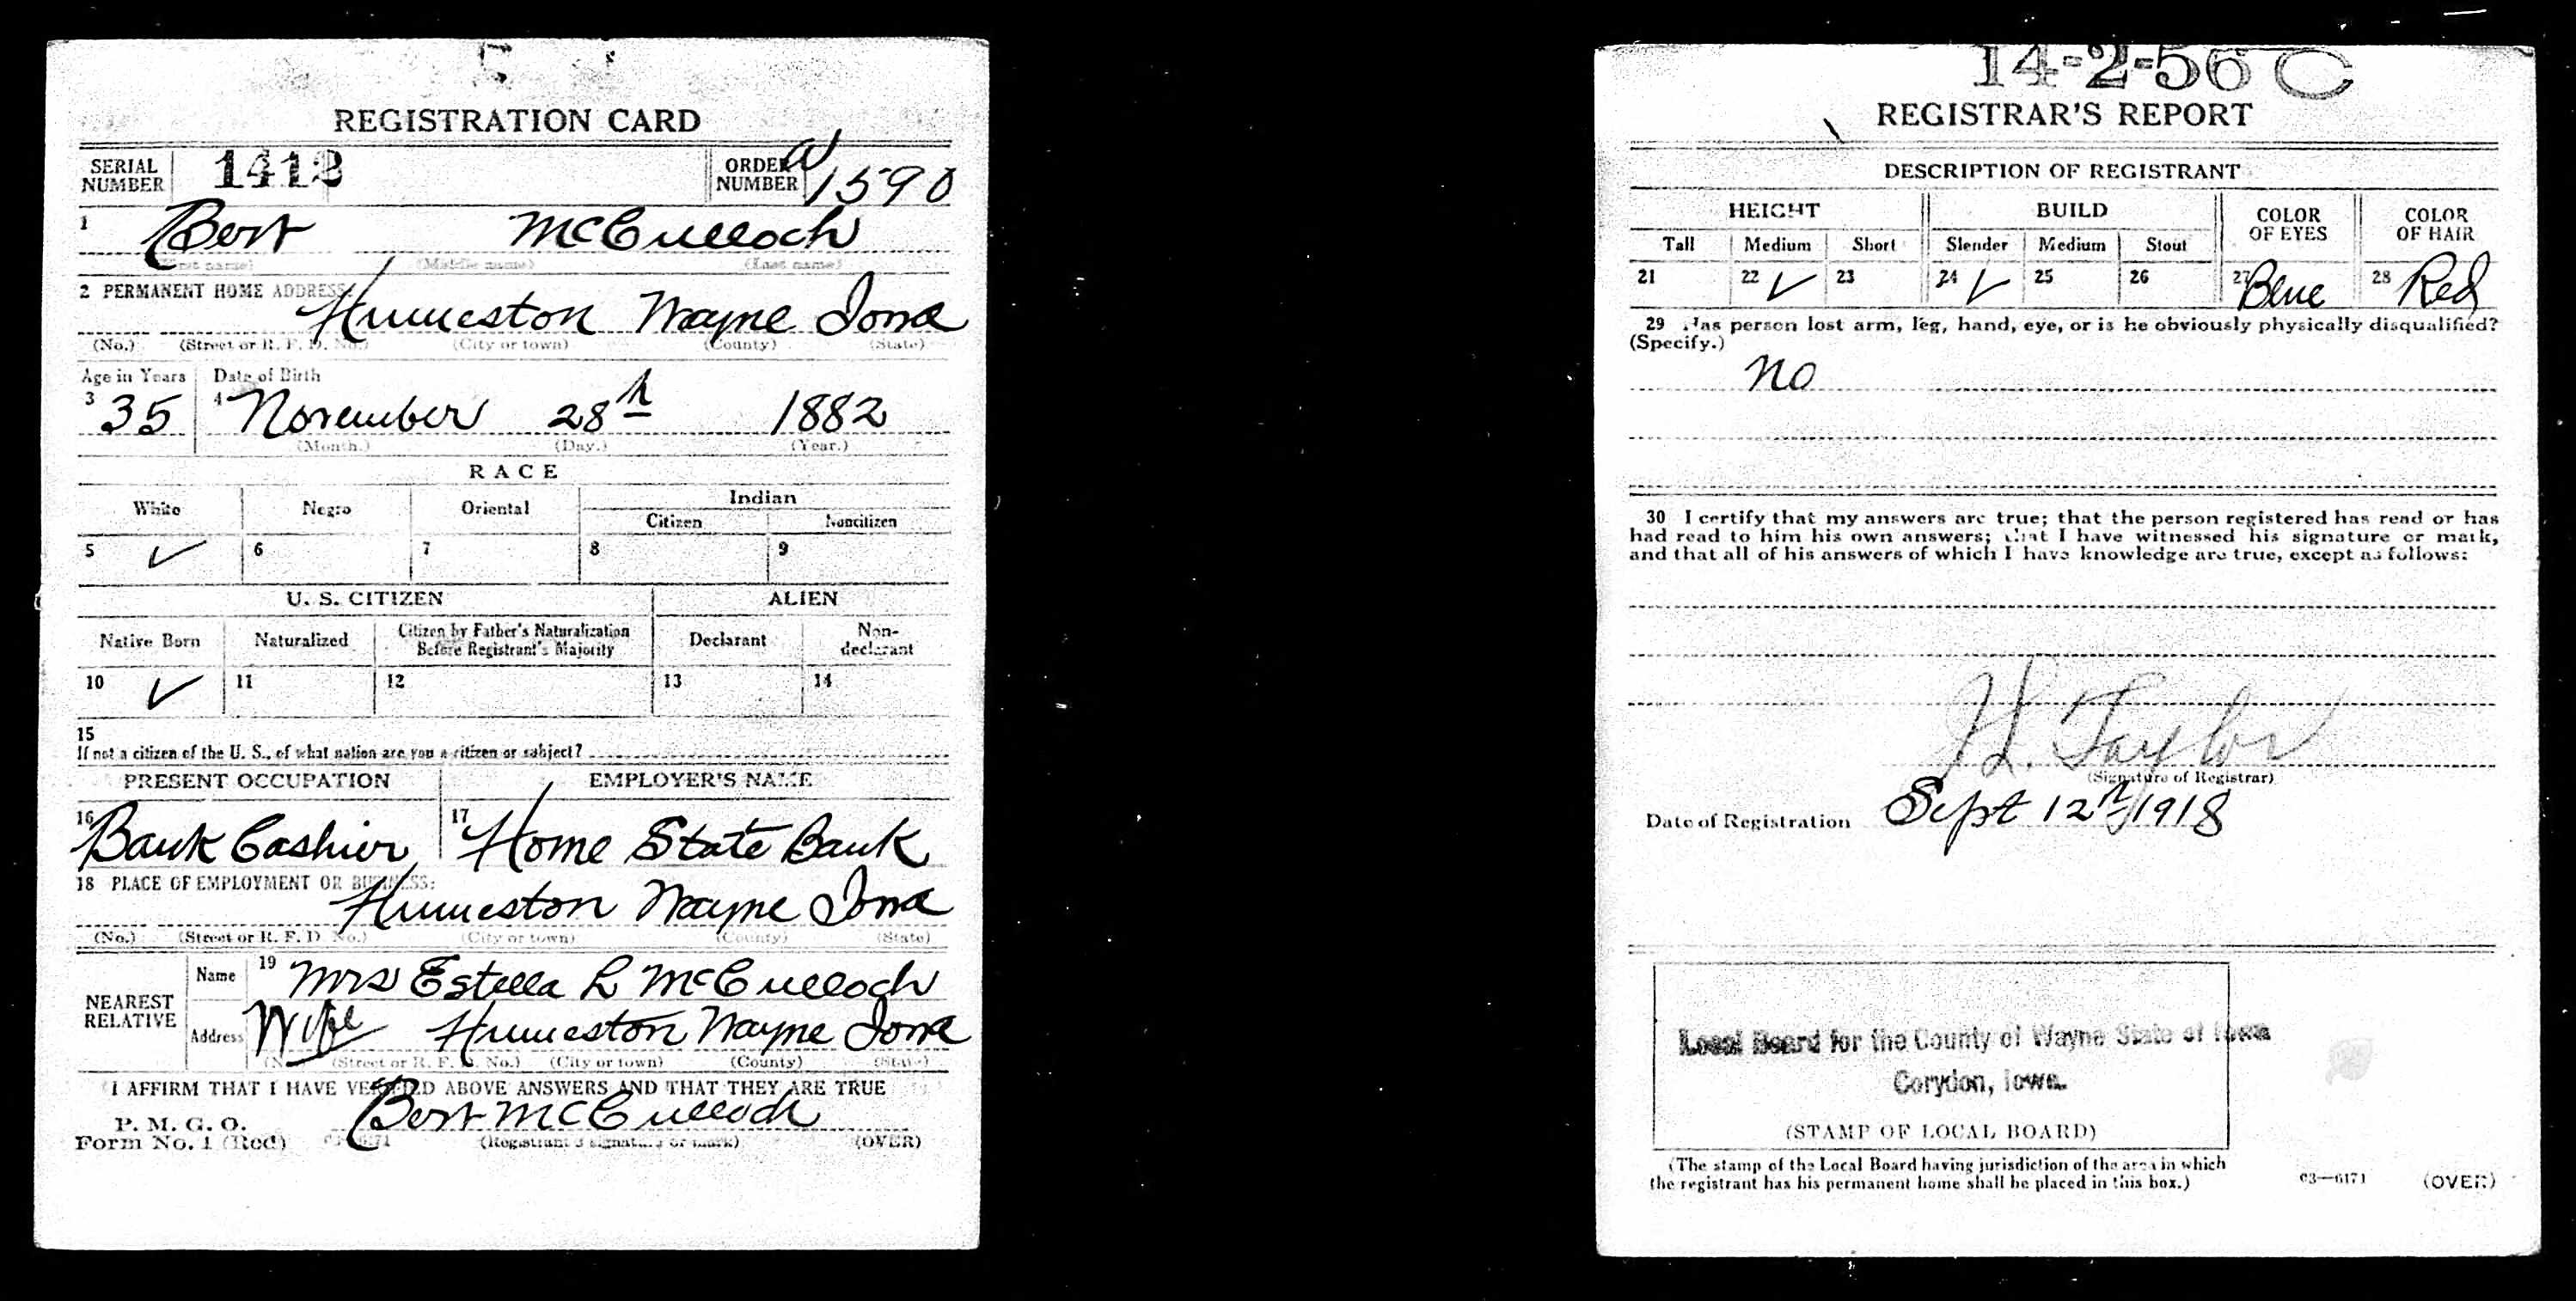 REGISTRATION CARD
SERIAL NUMBER
ORDER NUMBER A 1590
1 Bert McCulloch
(First name) (Middle name) (Last name)
2 PERMANENT HOME ADDRESS:
Humeston Wayne Iowa
(No.) (Street or R. F. D. No.) (City or town) (County) (State)
Age in Years Date of Birth
3 35 4 November 28th 1882
(Month.) (Day.) (Year.)
RACE
White Negro Oriental Indian
Citizen Noncitizen
5 ✓ 6 7 8 9
U. S. CITIZEN ALIEN
Native Born Naturalized Citizen by Father's Naturalization Before Registrant's Majority Declarant Non-declarant
10 ✓ 11 12 13 14
15
If not a citizen of the U. S., of what nation are you a citizen or subject?
PRESENT OCCUPATION EMPLOYER'S NAME
16 Bank Cashier 17 Home State Bank
18 PLACE OF EMPLOYMENT OR BUSINESS:
Humeston Wayne Iowa
(No.) (Street or R. F. D. No.) (City or town) (County) (State)
NEAREST RELATIVE
Name 19 Mrs Estella L McCulloch
Address Wife Humeston Wayne Iowa
(No.) (Street or R. F. D. No.) (City or town) (County) (State)
I AFFIRM THAT I HAVE VERIFIED ABOVE ANSWERS AND THAT THEY ARE TRUE
P. M. G. O.
Form No. 1 (Red)
Bert McCulloch
(Registrant's signature or mark) (OVER)
14-2-56 C
REGISTRAR'S REPORT
DESCRIPTION OF REGISTRANT
HEIGHT BUILD COLOR OF EYES COLOR OF HAIR
Tall Medium Short Slender Medium Stout
21 22 ✓ 23 24 ✓ 25 26 27 Blue 28 Red
29 Has person lost arm, leg, hand, eye, or is he obviously physically disqualified?
(Specify.)
No
30 I certify that my answers are true; that the person registered has read or has
had read to him his own answers; that I have witnessed his signature or mark,
and that all of his answers of which I have knowledge are true, except as follows:
Taylor
(Signature of Registrar)
Date of Registration Sept 12th 1918
Local Board for the County of Wayne State of Iowa
Corydon, Iowa.
(STAMP OF LOCAL BOARD)
(The stamp of the Local Board having jurisdiction of the area in which
the registrant has his permanent home shall be placed in this box.)
03—6171 (OVER)